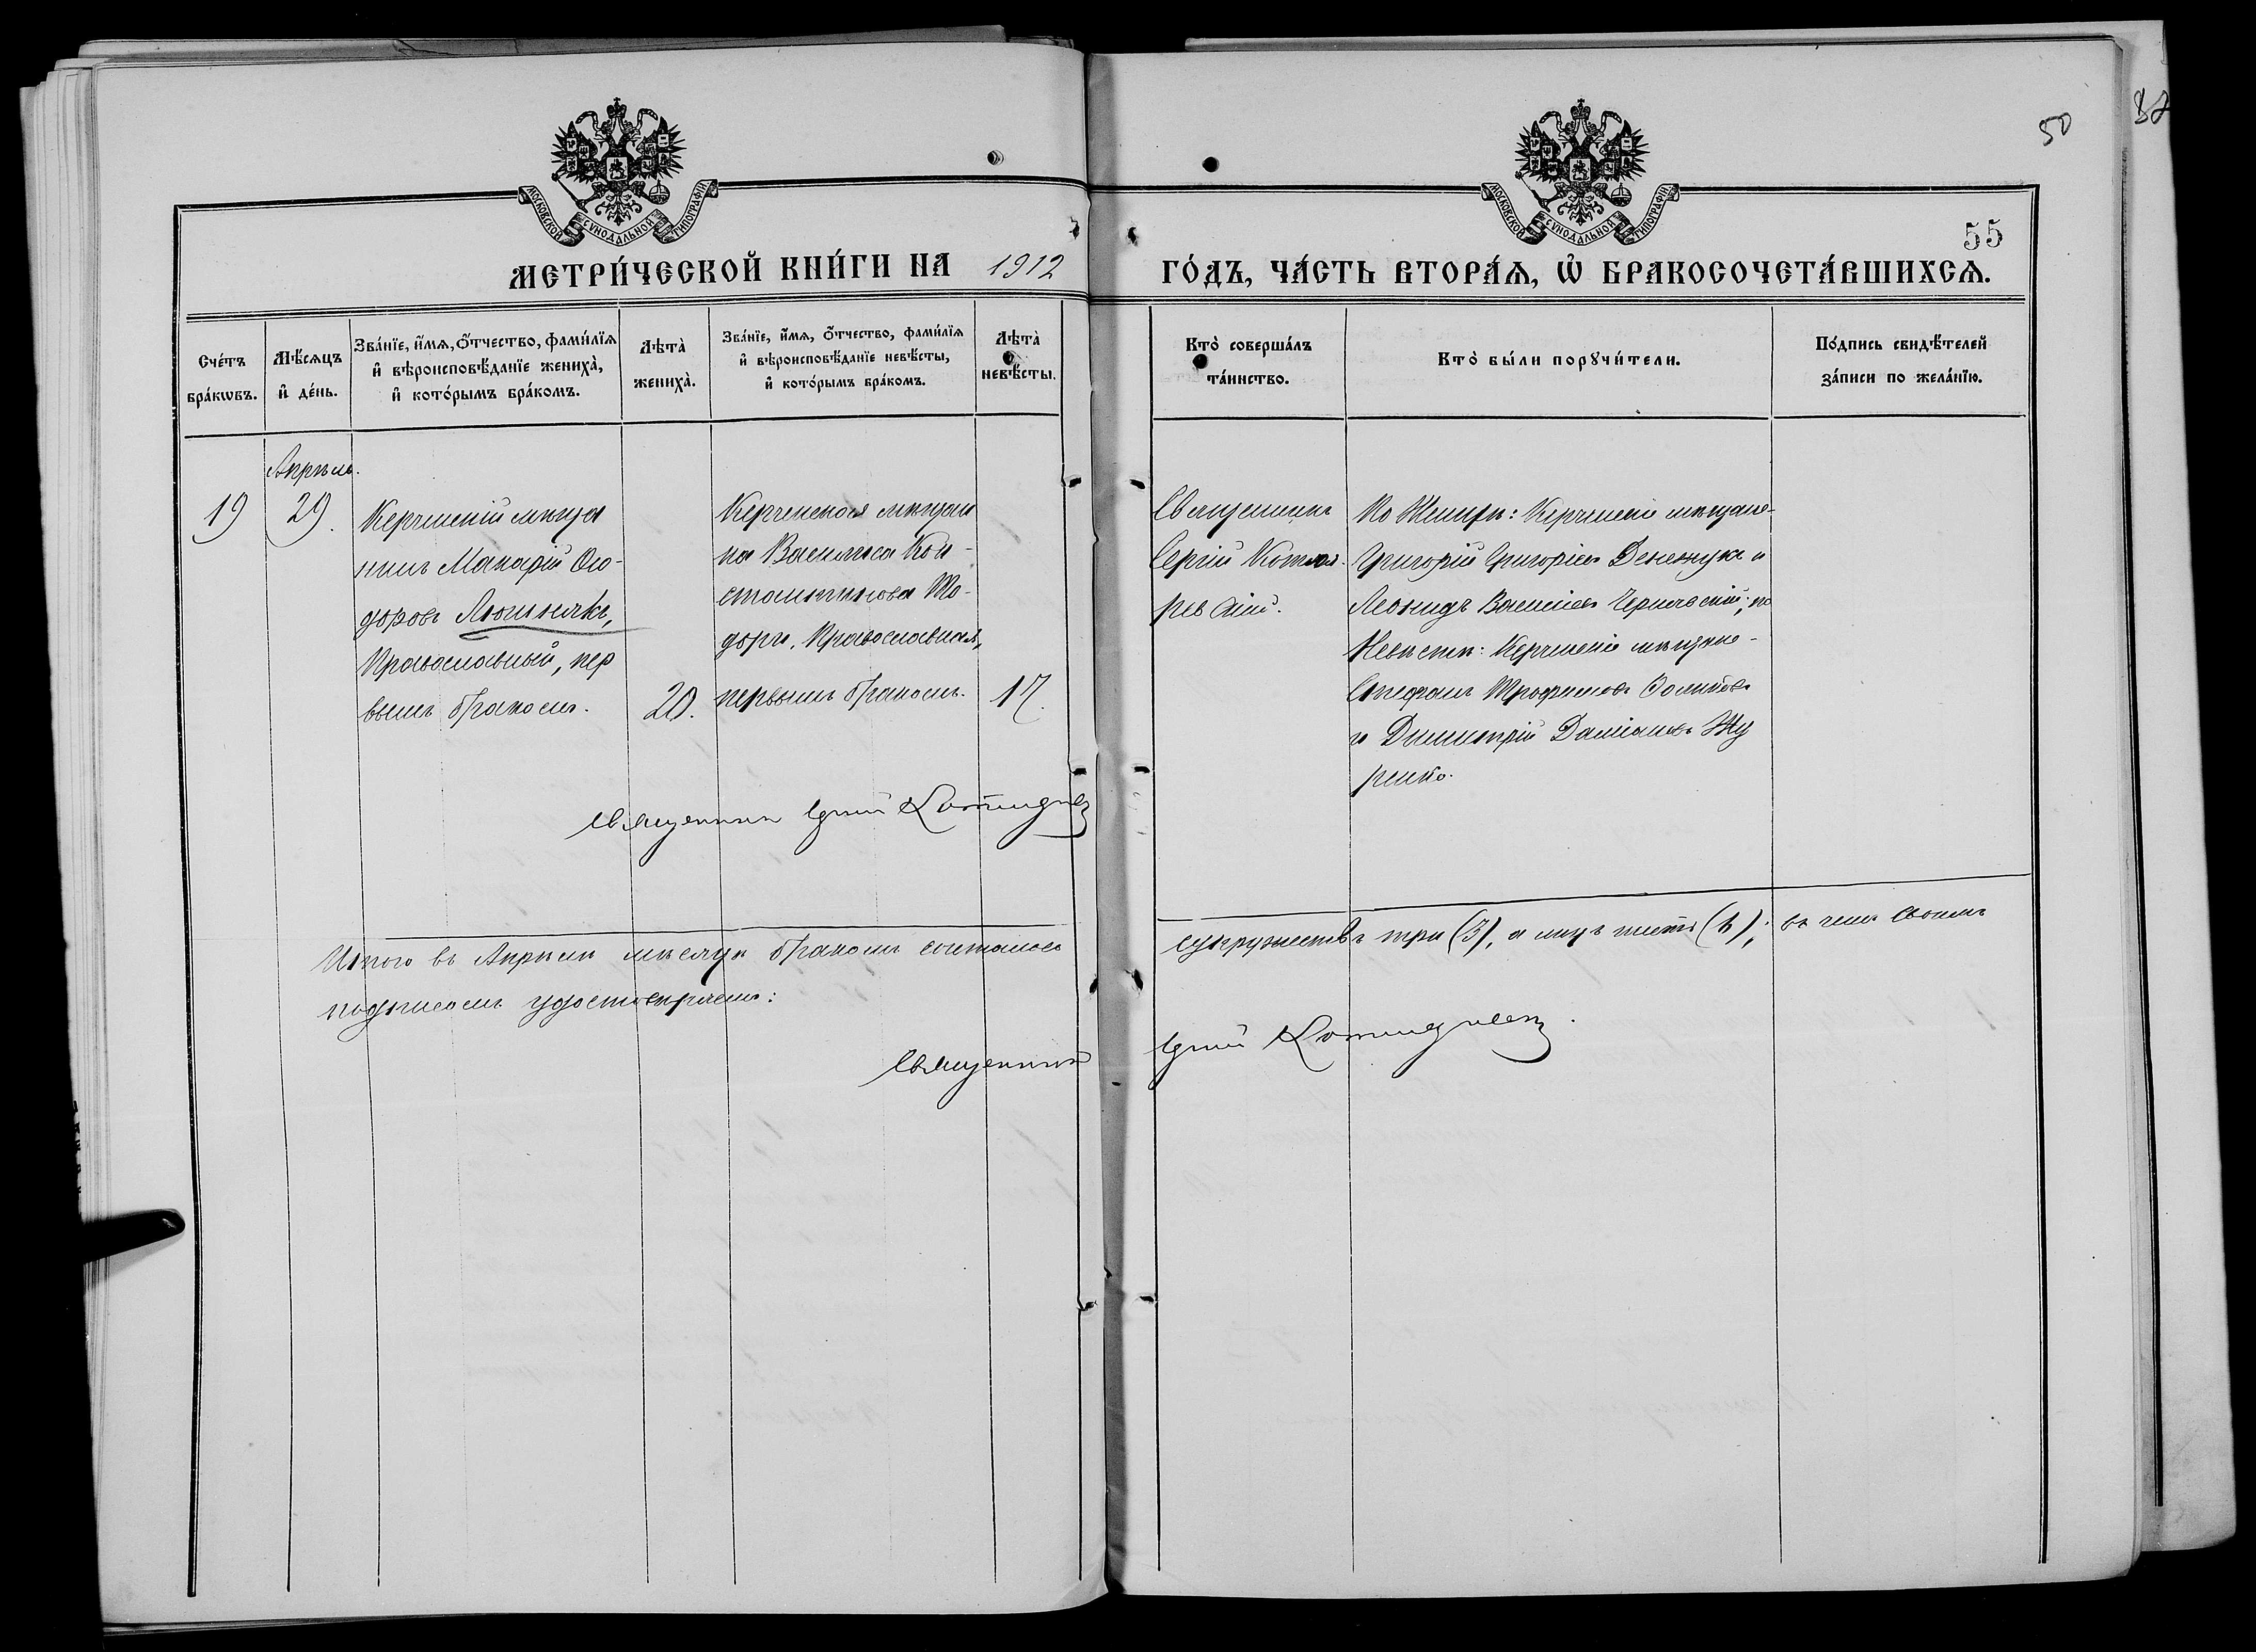 50
55
МОСКОВСКОЙ СУНОДАЛЬНОЙ ТИПОГРАФІИ
МОСКОВСКОЙ СУНОДАЛЬНОЙ ТИПОГРАФІИ
МЕТРИ́ЧЕСКОЙ КНИ́ГИ НА 1912
ГО́ДЪ, ЧА́СТЬ ВТОРА́Ѧ, Ѡ҆ БРАКОСОЧЕТА́ВШИХСѦ.
Сче́тъ бра́кѡвъ.
Мѣ́сяцъ и҆ де́нь.
Зва́нїе, и҆́мя, ѻ҆́тчество, фами́лїя
и҆ вѣроисповѣ́данїе жениха̀,
и҆ кото́рымъ бра́комъ.
Лѣта̀ жениха̀.
Зва́нїе, и҆́мя, ѻ҆́тчество, фами́лїя
и҆ вѣроисповѣ́данїе невѣ́сты,
и҆ кото́рымъ бра́комъ.
Лѣта̀ невѣ́сты.
Кто̀ соверша́лъ
та́инство.
Кто̀ бы́ли порꙋчи́тели.
По́дпись свидѣ́телей
за́писи по жела́нїю.
Апрѣль.
19
29.
Керченскій мѣща
нинъ Макарій Ѳео-
доровъ Люшнякъ,
Православный, пер
вымъ бракомъ.
20.
Керченская мѣщан
ка Василиса Кон-
стантинова То-
дори, Православная,
первымъ бракомъ.
17.
Священникъ
Сергій Котля-
ревскій.
По Женихѣ: Керченскіе мѣщане-
Григорій Григорьевъ и
Леонидъ Васильевъ Чернявскій; по
Невѣстѣ: Керченскіе мѣщане-
Стефанъ Трофимовъ
и Димитрій Даміановъ Жу
ренко.
Священникъ Сергій Котляревскій
Итого въ Апрѣлѣ мѣсяцѣ бракомъ сочеталось
супружествъ три (3), а лицъ шесть (6); въ чемъ своимъ
подписомъ удостовѣряемъ:
Священникъ Сергій Котляревскій.